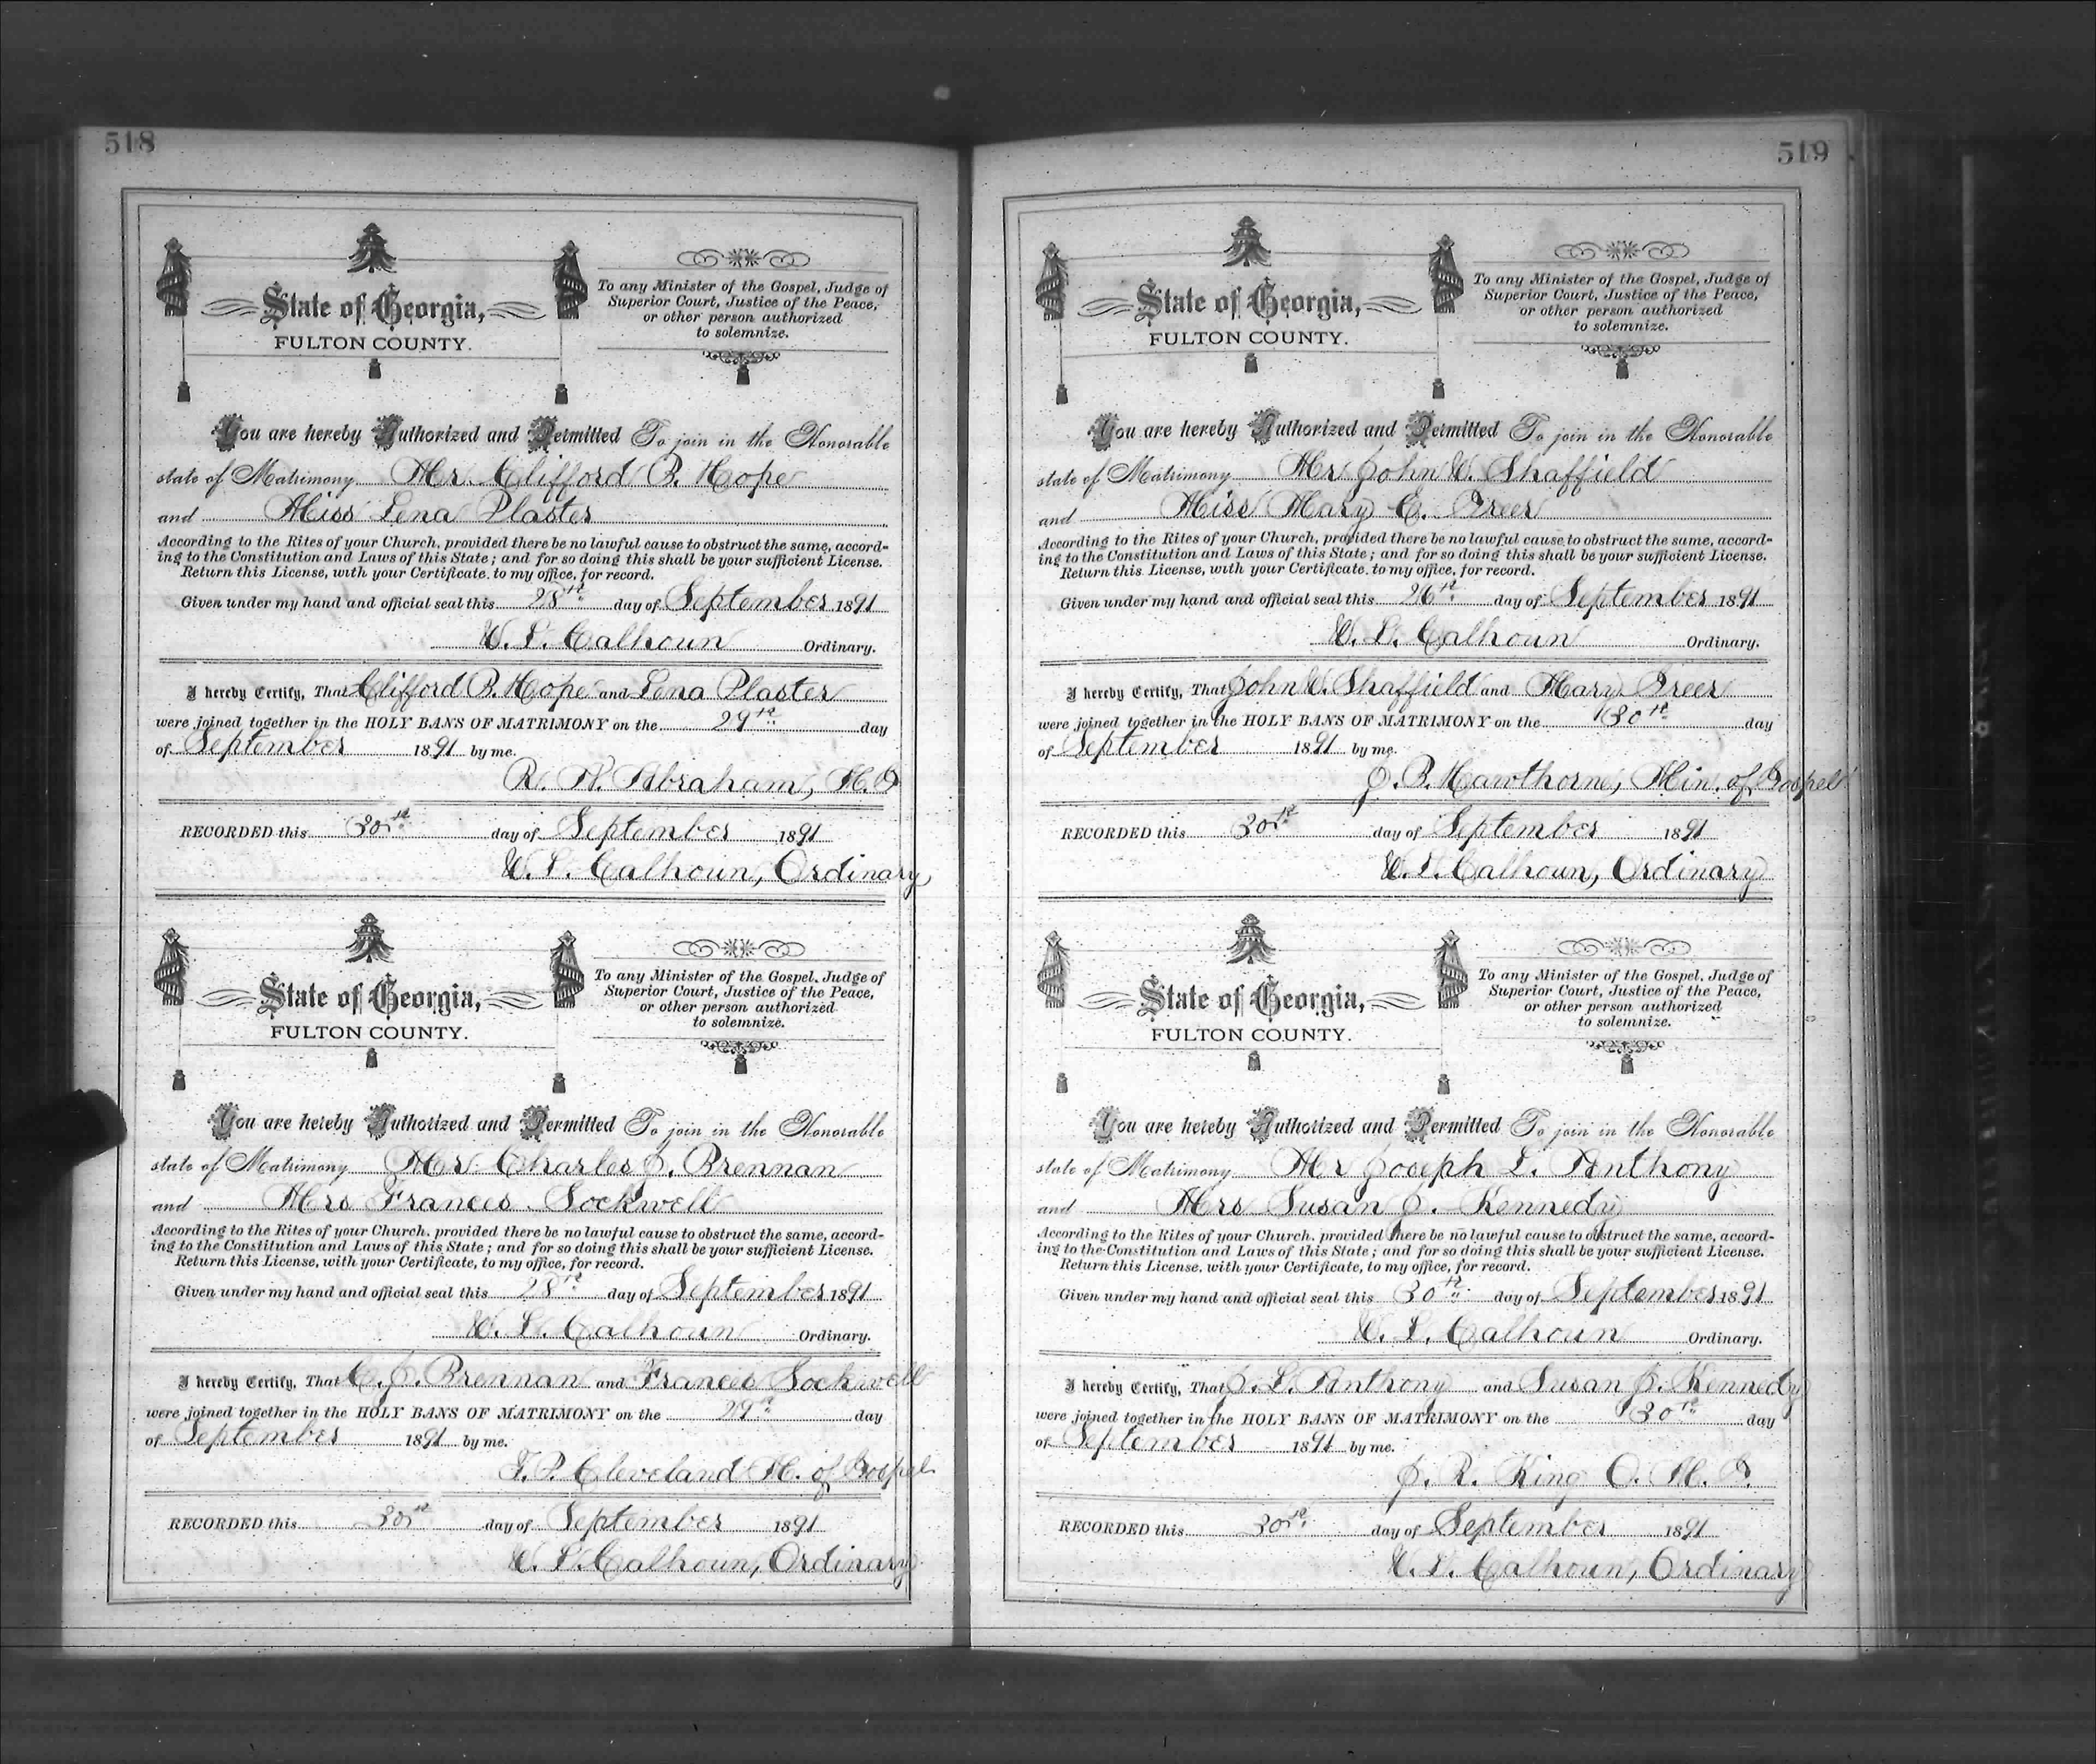 518
State of Georgia,
FULTON COUNTY.
To any Minister of the Gospel, Judge of
Superior Court, Justice of the Peace,
or other person authorized
to solemnize.
You are hereby Authorized and Permitted To join in the Honorable
state of Matrimony Mr. Clifford B. Hope
and Miss Lena Plaster
According to the Rites of your Church, provided there be no lawful cause to obstruct the same, accord-
ing to the Constitution and Laws of this State; and for so doing this shall be your sufficient License.
Return this License, with your Certificate, to my office, for record.
Given under my hand and official seal this 28th day of September 1891
W. L. Calhoun Ordinary.
I hereby Certify, That Clifford B. Hope and Lena Plaster
were joined together in the HOLY BANS OF MATRIMONY on the 29th day
of September 1891 by me.
Abraham, M. G
RECORDED this 30th day of September 1891
W. L. Calhoun, Ordinary
State of Georgia,
FULTON COUNTY.
To any Minister of the Gospel, Judge of
Superior Court, Justice of the Peace,
or other person authorized
to solemnize.
You are hereby Authorized and Permitted To join in the Honorable
state of Matrimony Mr. Charles J. Brennan
and Mrs Frances Sockwell
According to the Rites of your Church, provided there be no lawful cause to obstruct the same, accord-
ing to the Constitution and Laws of this State; and for so doing this shall be your sufficient License.
Return this License, with your Certificate, to my office, for record.
Given under my hand and official seal this 28th day of September 1891
W. L. Calhoun Ordinary.
I hereby Certify, That C. J. Brennan and Frances Sockwell
were joined together in the HOLY BANS OF MATRIMONY on the 29th day
of September 1891 by me.
Cleveland M. of Gospel
RECORDED this 30th day of September 1891
W. L. Calhoun, Ordinary
519
State of Georgia,
FULTON COUNTY.
To any Minister of the Gospel, Judge of
Superior Court, Justice of the Peace,
or other person authorized
to solemnize.
You are hereby Authorized and Permitted To join in the Honorable
state of Matrimony Mr John W. Shaffield
and Miss Mary C. Greer
According to the Rites of your Church, provided there be no lawful cause to obstruct the same, accord-
ing to the Constitution and Laws of this State; and for so doing this shall be your sufficient License.
Return this License, with your Certificate, to my office, for record.
Given under my hand and official seal this 26th day of September 1891
W. L. Calhoun Ordinary.
I hereby Certify, That John W. Shaffield and Mary Greer
were joined together in the HOLY BANS OF MATRIMONY on the 30th day
of September 1891 by me.
J. B. Hawthorne, Min. of Gospel
RECORDED this 30th day of September 1891
W. L. Calhoun, Ordinary
State of Georgia,
FULTON COUNTY.
To any Minister of the Gospel, Judge of
Superior Court, Justice of the Peace,
or other person authorized
to solemnize.
You are hereby Authorized and Permitted To join in the Honorable
state of Matrimony Mr Joseph L. Anthony
and Mrs Susan J. Kennedy
According to the Rites of your Church, provided there be no lawful cause to obstruct the same, accord-
ing to the Constitution and Laws of this State; and for so doing this shall be your sufficient License.
Return this License, with your Certificate, to my office, for record.
Given under my hand and official seal this 30th day of September 1891
W. L. Calhoun Ordinary.
I hereby Certify, That J. L. Anthony and Susan J. Kennedy
were joined together in the HOLY BANS OF MATRIMONY on the 30th day
of September 1891 by me.
J. R. King O. M. G.
RECORDED this 30th day of September 1891
W. L. Calhoun, Ordinary